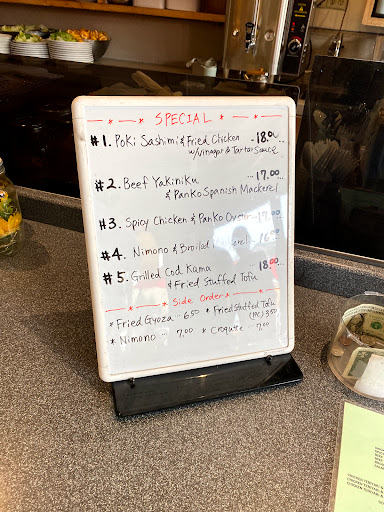 SPECIAL
#1. Poki Sashimi & Fried Chicken ... 18.00
w/vinegar & Tartar Sauce
#2. Beef Yakiniku ... 17.00
& Panko Spanish Mackerel
#3. Spicy Chicken & Panko Oyster
#4. Nimono & Broiled
#5. Grilled Cod Kama ... 18.00
& Fried Stuffed Tofu
Side Order
* Fried Gyoza ... 6.50 * Fried Stuffed Tofu
(1PC) 3.50
* Nimono ... 7.00 * Croquette ... 7.00